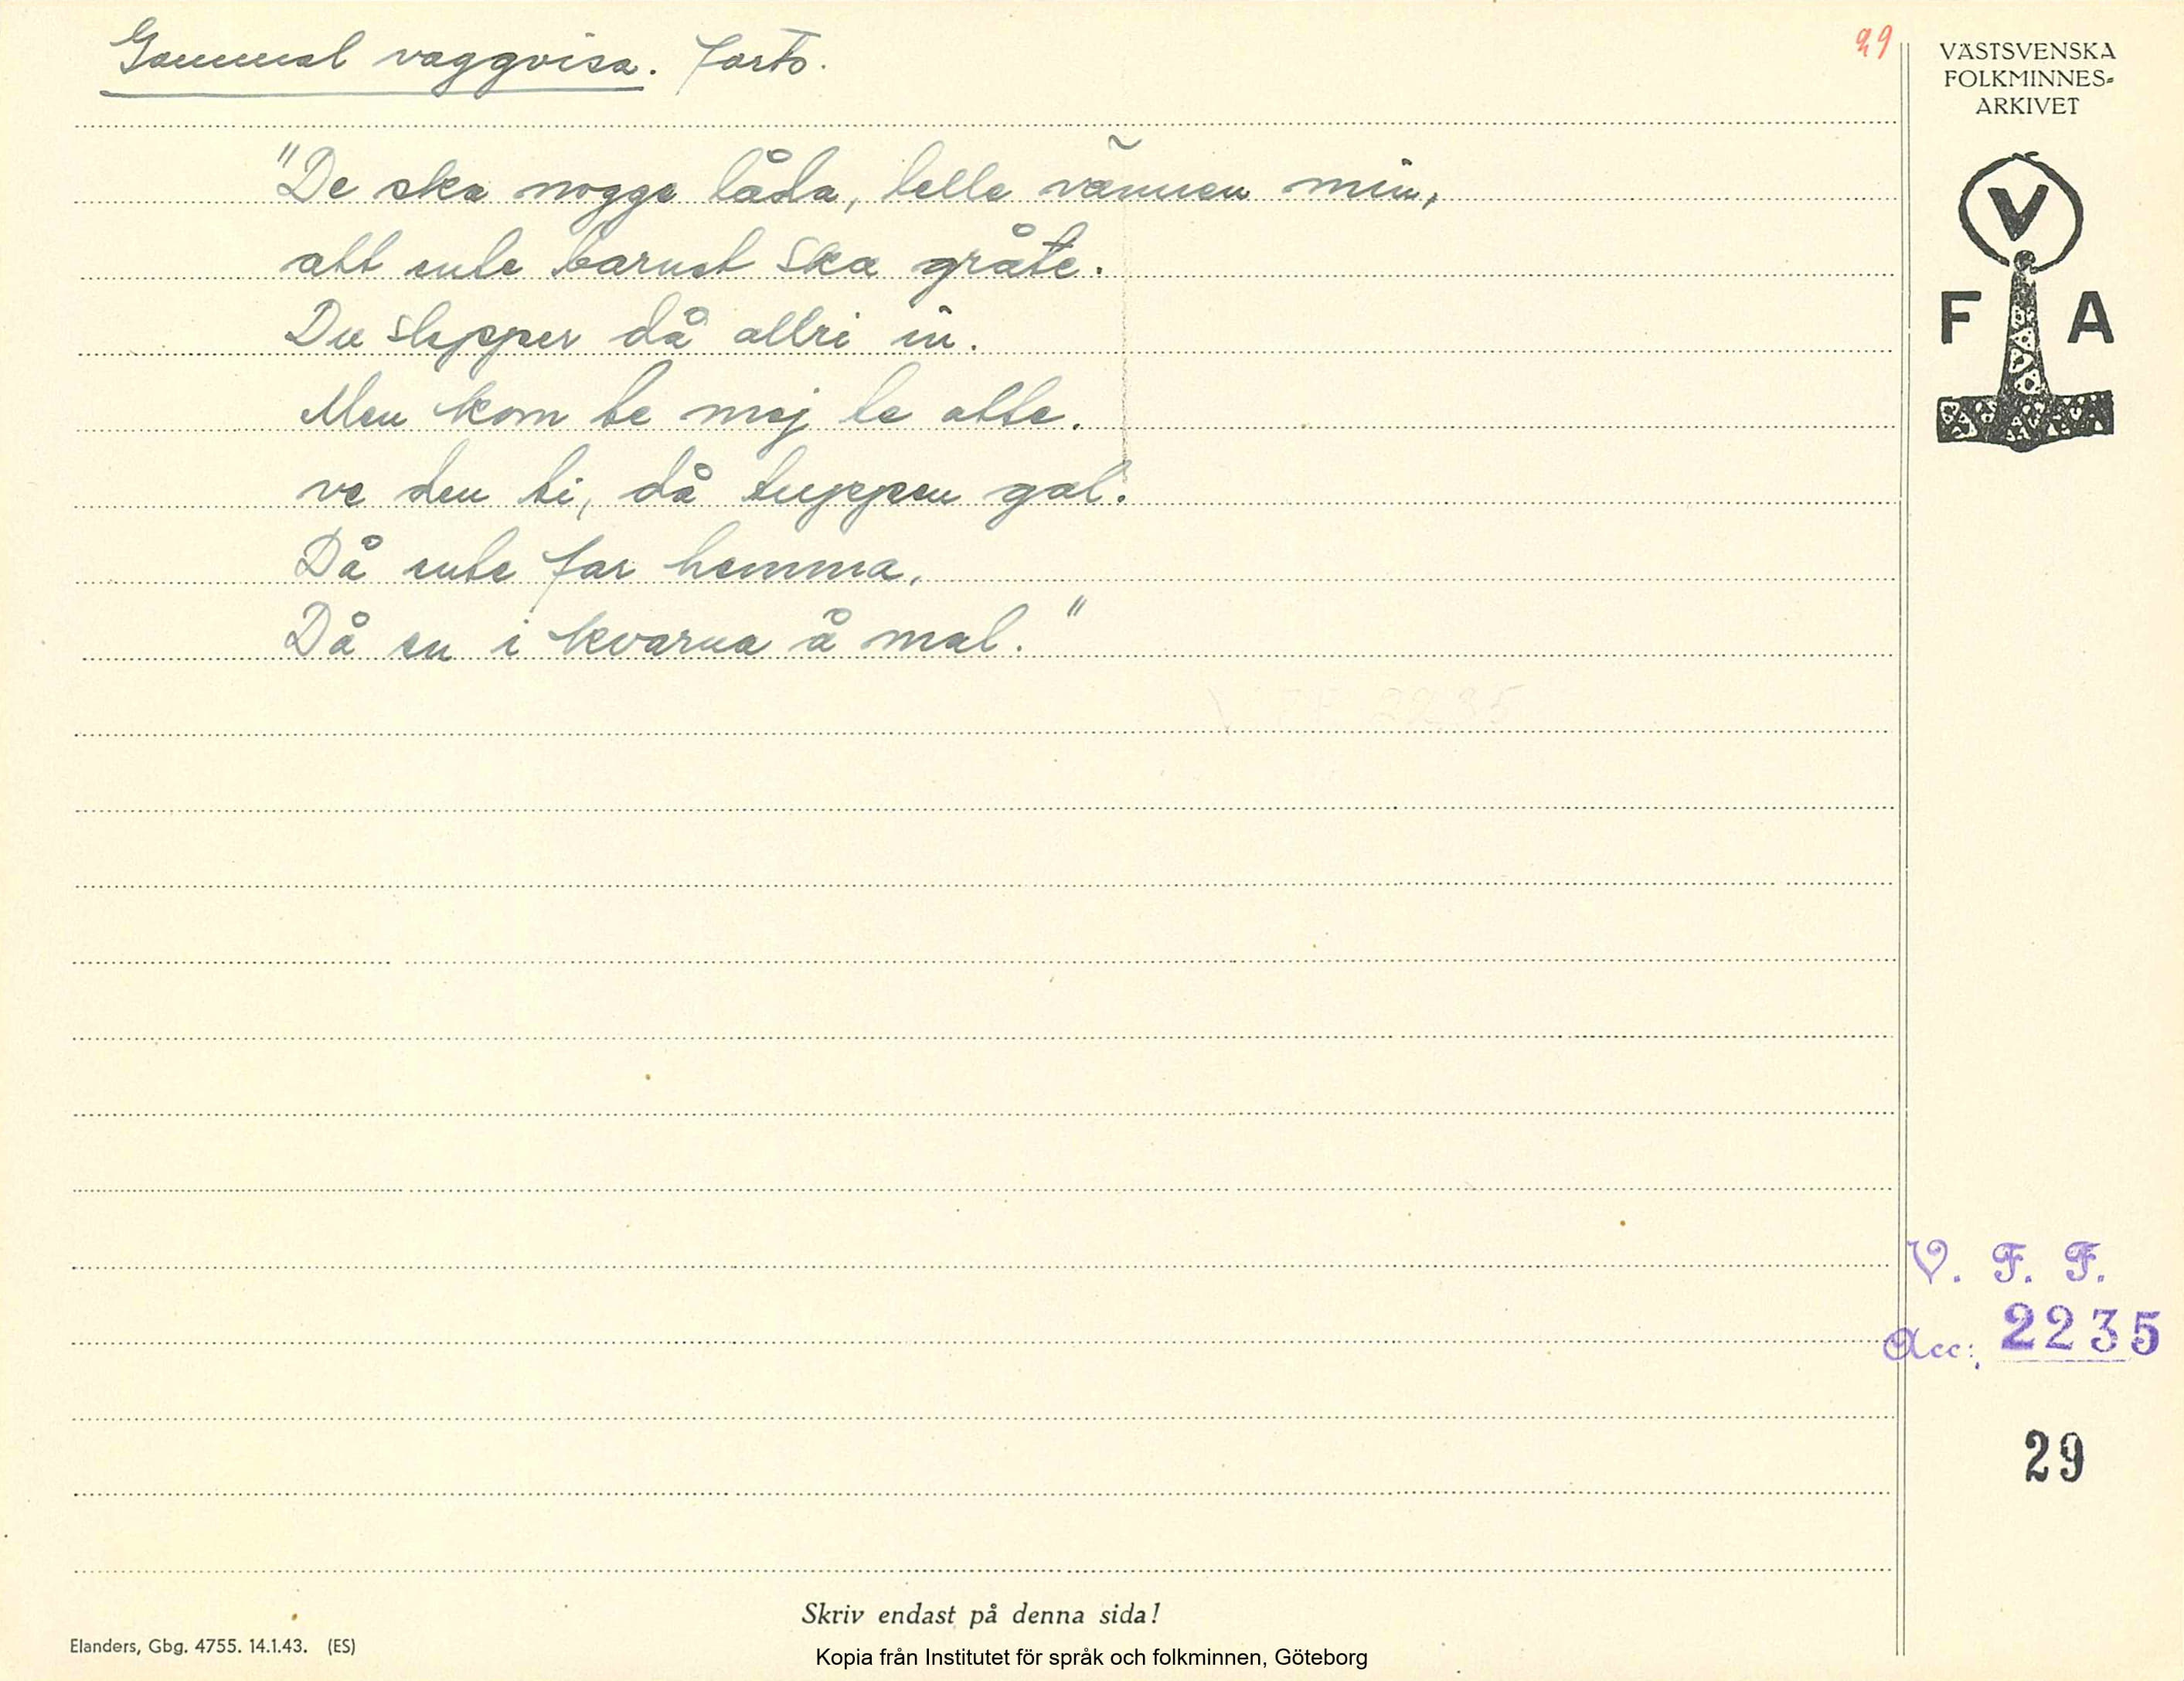 Gammal vaggvisa. forts.
29
VÄSTSVENSKA
FOLKMINNES-
ARKIVET
V
F A
"De ska nogge låda, lelle vännen min,
att ente barnet ska gråte.
Du slepper då allri in.
Men kom te mej te atte.
ve den ti, då tuppen gal.
Då ente far hemma,
Då en i kvarna å mal."
V. F. F.
Acc: 2235
29
Skriv endast på denna sida!
Elanders, Gbg. 4755. 14.1.43. (ES)
Kopia från Institutet för språk och folkminnen, Göteborg